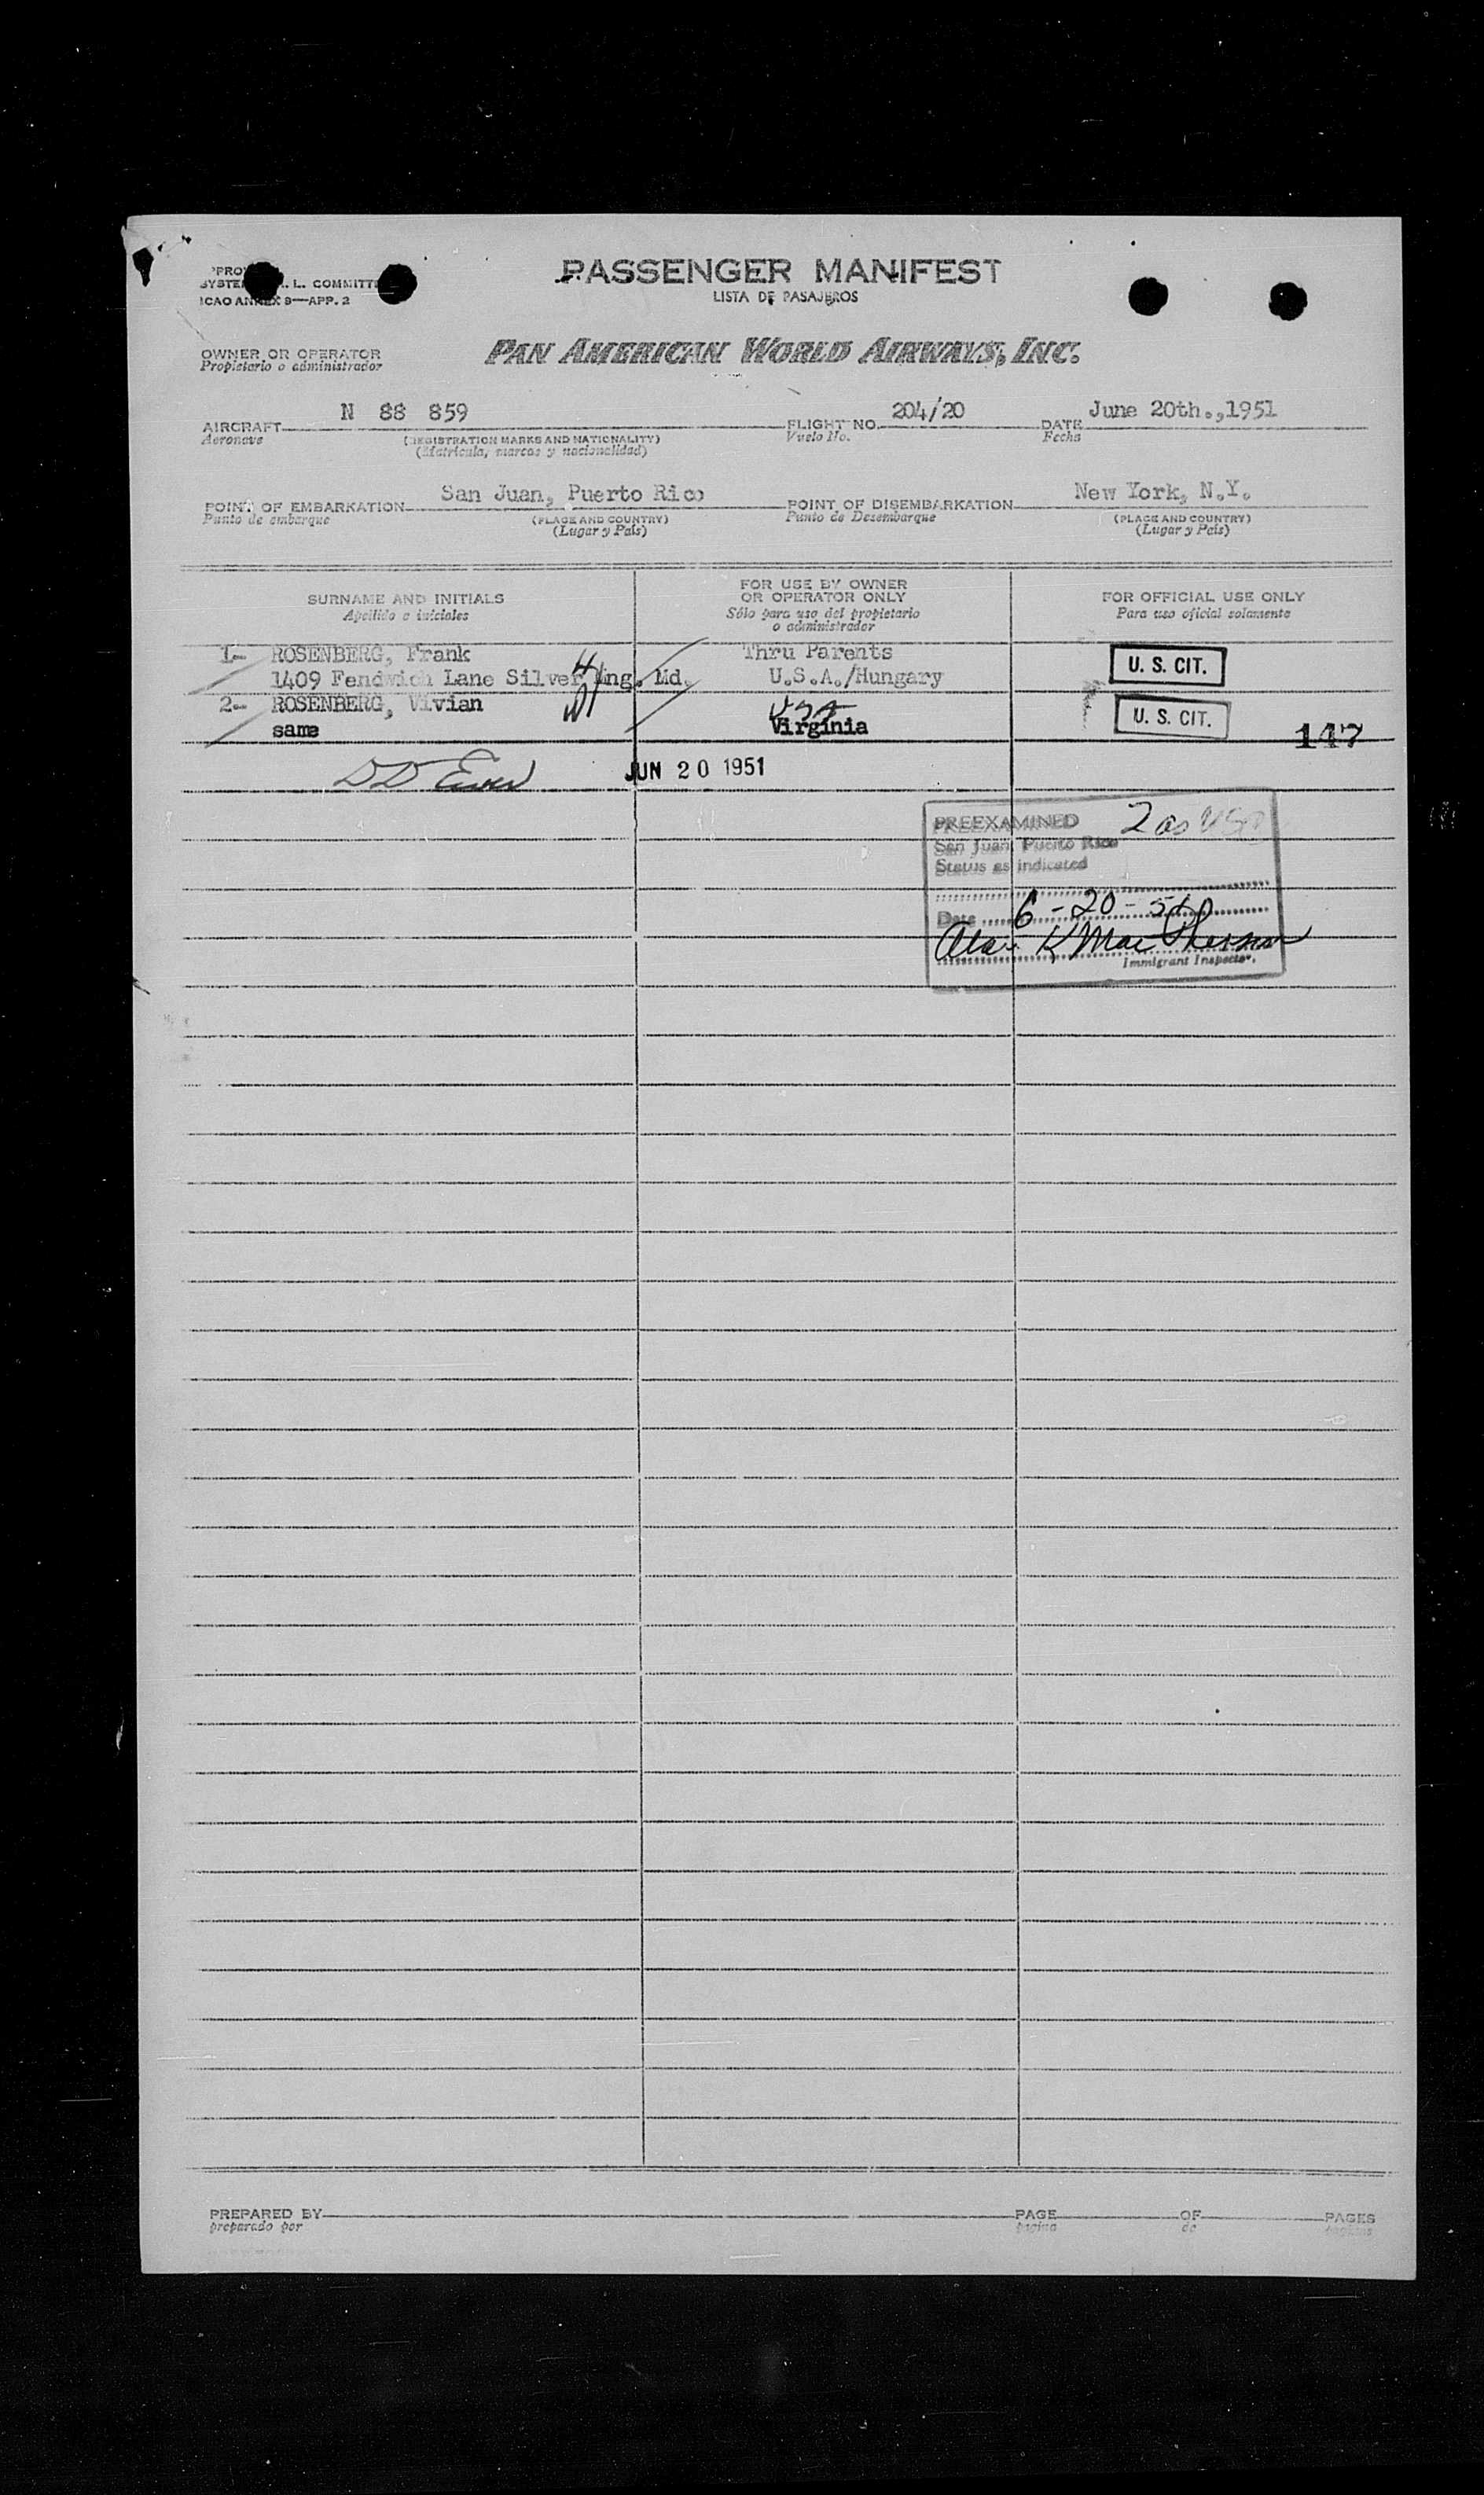 PASSENGER MANIFEST
LISTA DE PASAJEROS
L. COMMITTE
ICAO ANNEX 9—APP. 2
OWNER OR OPERATOR
Propietario o administrador
PAN AMERICAN WORLD AIRWAYS, INC.
AIRCRAFT N 88 859 FLIGHT NO. 204/20 DATE June 20th.,1951
Aeronave (REGISTRATION MARKS AND NATIONALITY) Vuelo No. Fecha
(Matrícula, marcas y nacionalidad)
POINT OF EMBARKATION San Juan, Puerto Rico POINT OF DISEMBARKATION New York, N.Y.
Punto de embarque (PLACE AND COUNTRY) Punto de Desembarque (PLACE AND COUNTRY)
(Lugar y País) (Lugar y País)
SURNAME AND INITIALS FOR USE BY OWNER OR OPERATOR ONLY FOR OFFICIAL USE ONLY
Apellido e iniciales Sólo para uso del propietario o administrador Para uso oficial solamente
1- ROSENBERG, Frank Thru Parents U. S. CIT.
1409 Fendwich Lane Silver Md. U.S.A./Hungary
2- ROSENBERG, Vivian USA U. S. CIT.
same Virginia 147
JUN 20 1951
PREEXAMINED 2 as USA
San Juan, Puerto Rico
Status as indicated
Date 6-20-51
Alan K MacPherson
Immigrant Inspector.
PREPARED BY PAGE OF PAGES
preparado por página de páginas